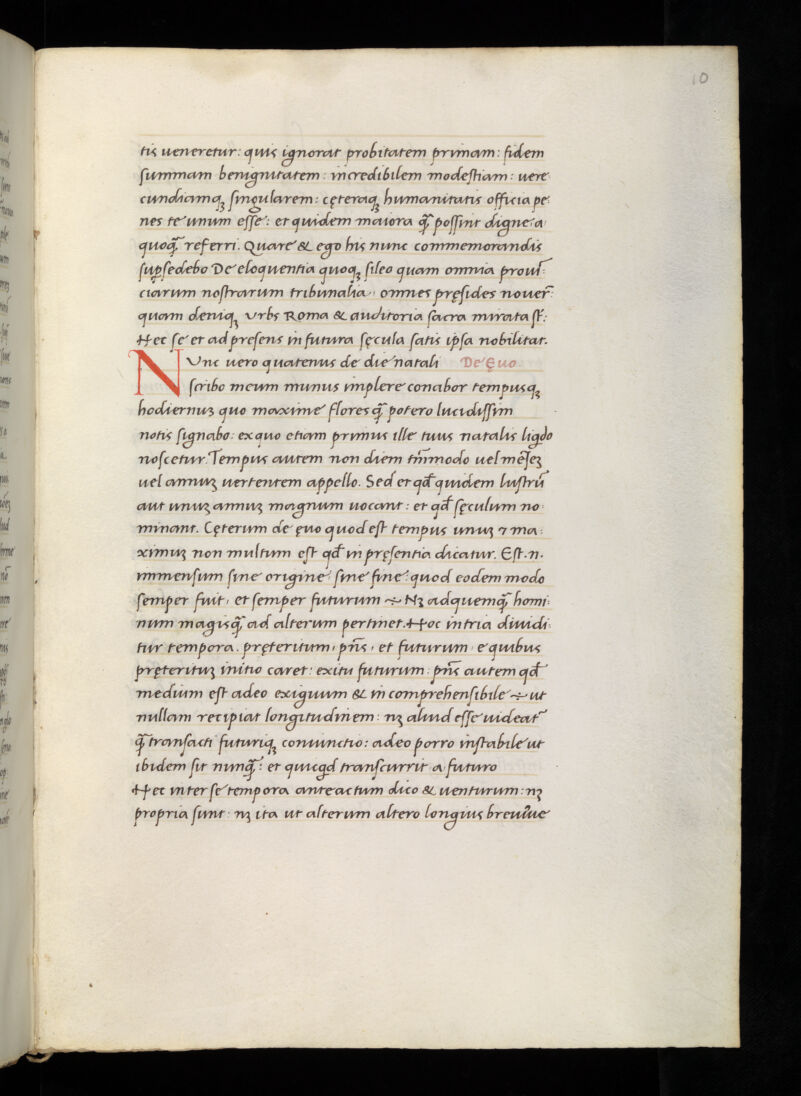 10
tis ueneretur: quis ignorat probitatem primam: fidem
summam benignitatem: incredibilem modestiam: uere
cundiamqꝫ singularem: cęteraqꝫ humanitatis officia pe
nes te unum esse: et quidem maiora ꝙ̄ possint digne a
quoꝙ̄ referri. Quare & ego his nunc commemorandis
suꝑsedebo De eloquentia quoqꝫ sileo quam omnia prouī:
ciarum nostrarum tribunalia, omnes pręsides nouer̄:
quam deniqꝫ Vrbs Roma & auditoria sacra mirata st̄:
Hec se et ad presens in futura sęcula satis ipsa nobilitat.
NVnc uero quatenus de die natali De Ęuo
scribo meum munus implere conabor tempusqꝫ
hodiernuꝫ quo maxime flores ꝙ̄ potero lucidissim
notis signabo: ex quo etiam primus ille tuus natalis liqdo
noscetur. Tempus autem non diem tm̄modo uel mēseꝫ
uel annuꝫ uertentem appello. Sed et qd̄ quidem lustrū
aut unuꝫ annuꝫ magnum uocant: et qd̄ sęculum no
minant. Cęterum de ęuo quod est tempus unuꝫ ⁊ ma
ximuꝫ non multum est qd̄ in pręsentia dicatur. Est .n.
immensum sine origine sine fine: quod eodem modo
semper fuit, et semper futurum ÷ Nꝫ ad quemꝙ̄ homi
num magisꝙ̄ ad alterum pertinet. Hoc in tria diuidi
tur tempora. pręteritum, pn̄s, et futurum. e quibus
pręterituꝫ initio caret: exitu futurum: pn̄s autem qd̄
medium est adeo exiguum & in comprehensibile ÷ ut
nullam recipiat longitudinem: nꝫ aliud esse uideat᷑
ꝙ̄ transacti futuriqꝫ coniunctio: adeo porro instabile ut
ibidem sit nunꝙ̄: et quicqd transcurrit a futuro
Hec inter se tempora anteactum dico & uenturum: nꝫ
propria sunt: nꝫ ita ut alterum altero longius breuiue